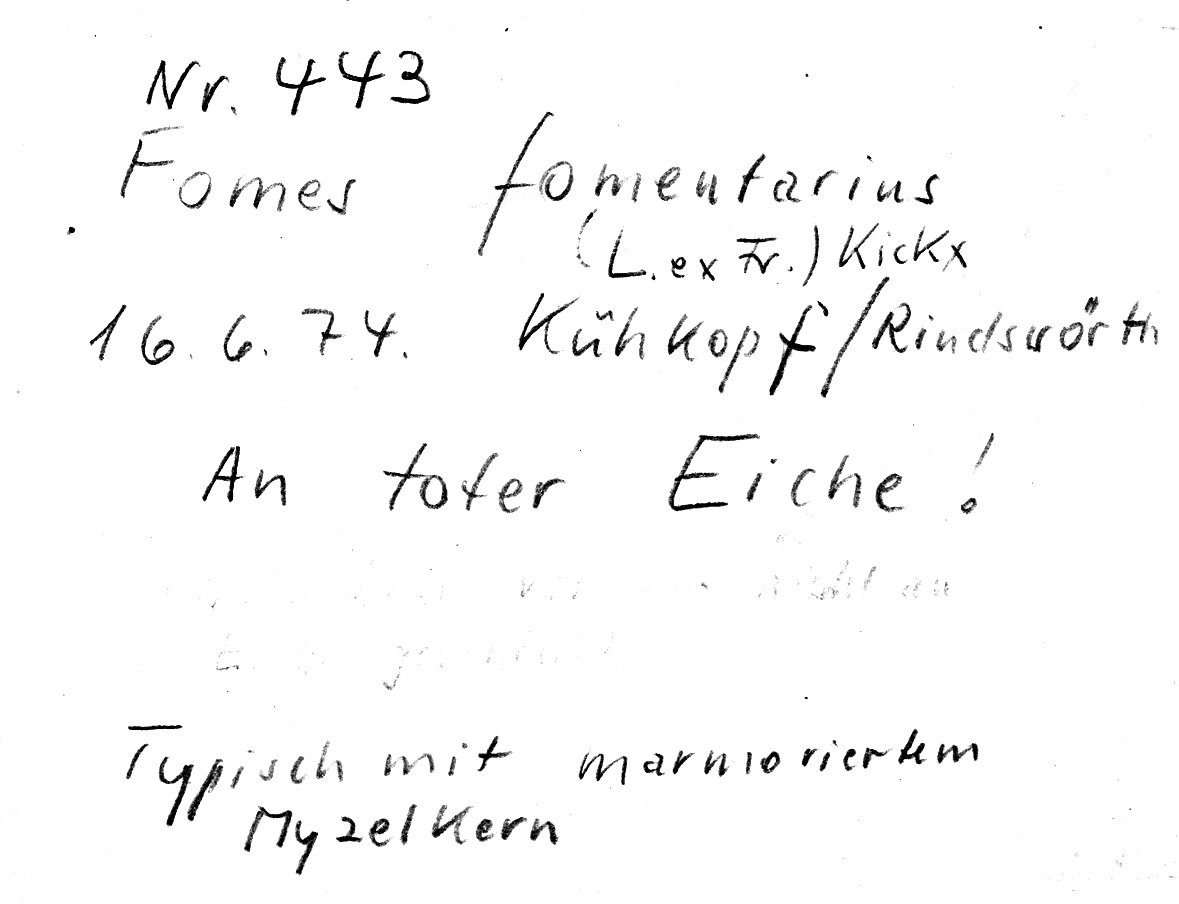 Nr. 443
Fomes fomentarius
(L. ex Fr.) Kickx
16. 6. 74. Kühkopf/Rindswörth
An toter Eiche!
an
Typisch mit marmoriertem
Myzelkern